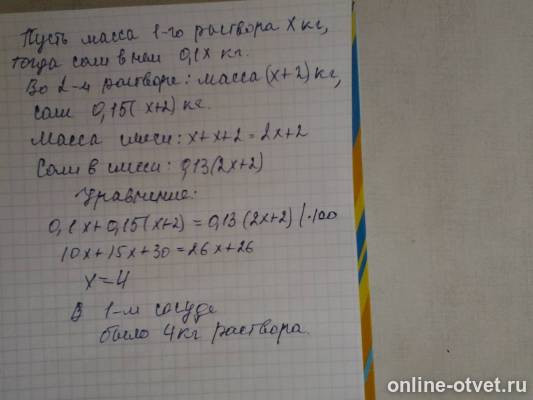 Пусть масса 1-го раствора x кг,
тогда соли в нем 0,1x кг.
Во 2-м растворе: масса (x+2) кг,
соли 0,15(x+2) кг.
Масса смеси: x+x+2=2x+2
Соли в смеси: 0,13(2x+2)
Уравнение:
0,1x+0,15(x+2)=0,13(2x+2) |·100
10x+15x+30=26x+26
x=4
В 1-м сосуде
было 4кг раствора.
online-otvet.ru